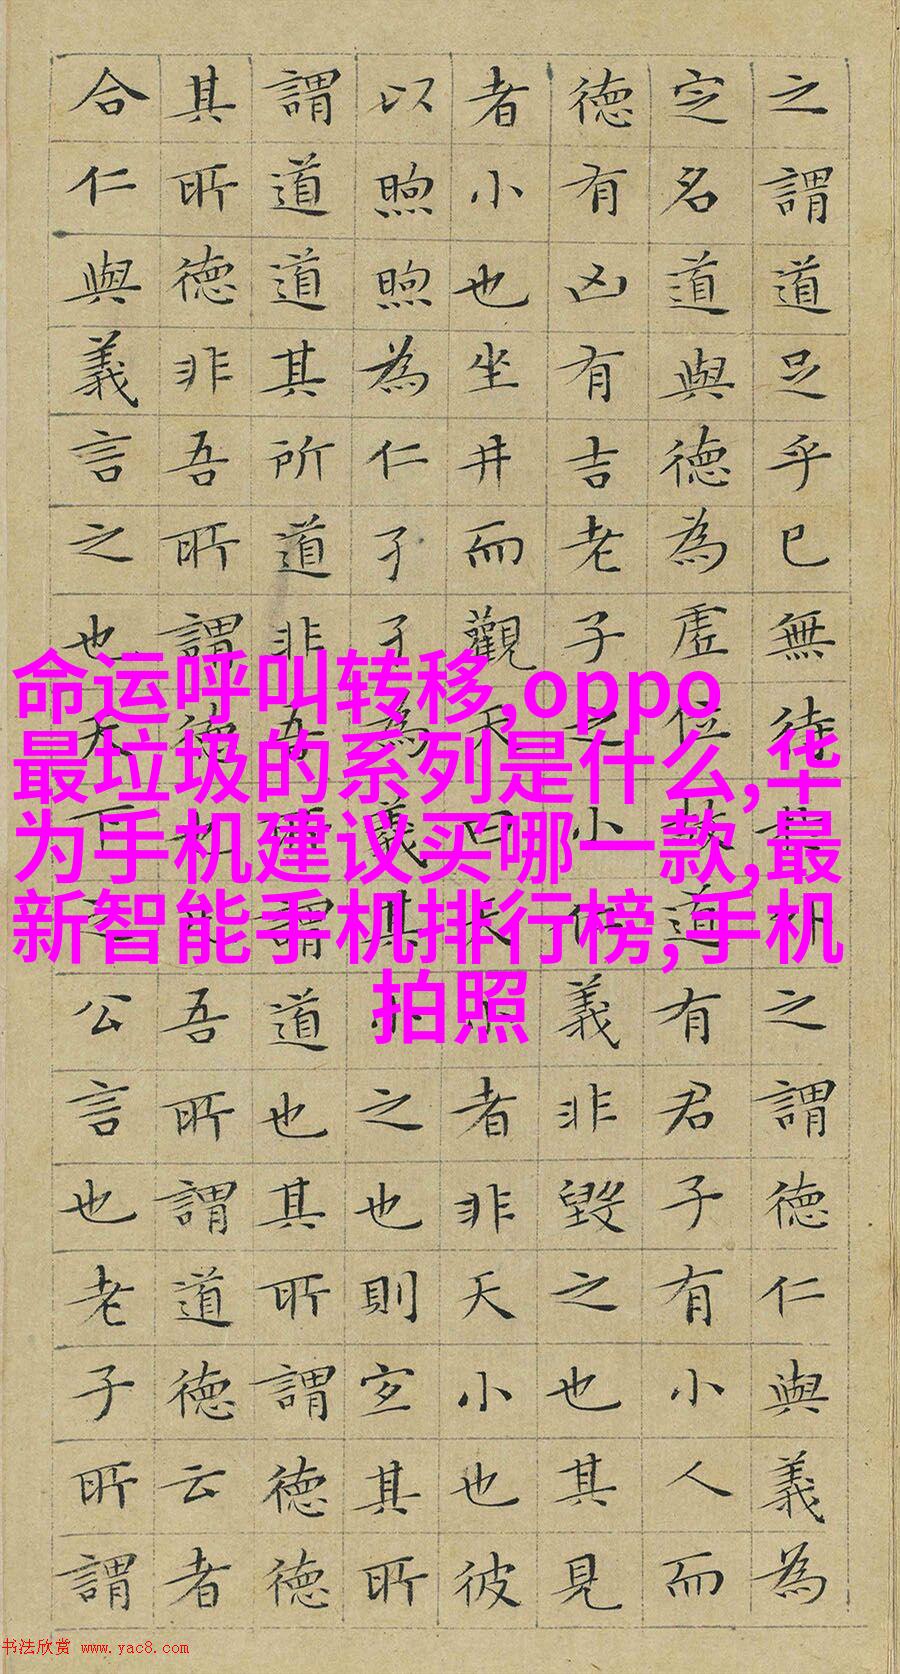 之謂道足乎己無待於外之謂德仁與義為
定名道與德為虛位故道有君子有小人而
德有凶有吉老子之小仁義非毀之也其見
者小也坐井而觀天曰天小者非天小也彼
以煦煦為仁孑孑為義其小之也則宜其所
謂道道其所道非吾所謂道也其所謂德德
其所德非吾所謂德也凡吾所謂道德云者
合仁與義言之也天下之公言也老子所謂
命运呼叫转移,oppo
最垃圾的系列是什么,华
为手机建议买哪一款,最
新智能手机排行榜,手机
拍照
书法欣赏 www.yac8.com